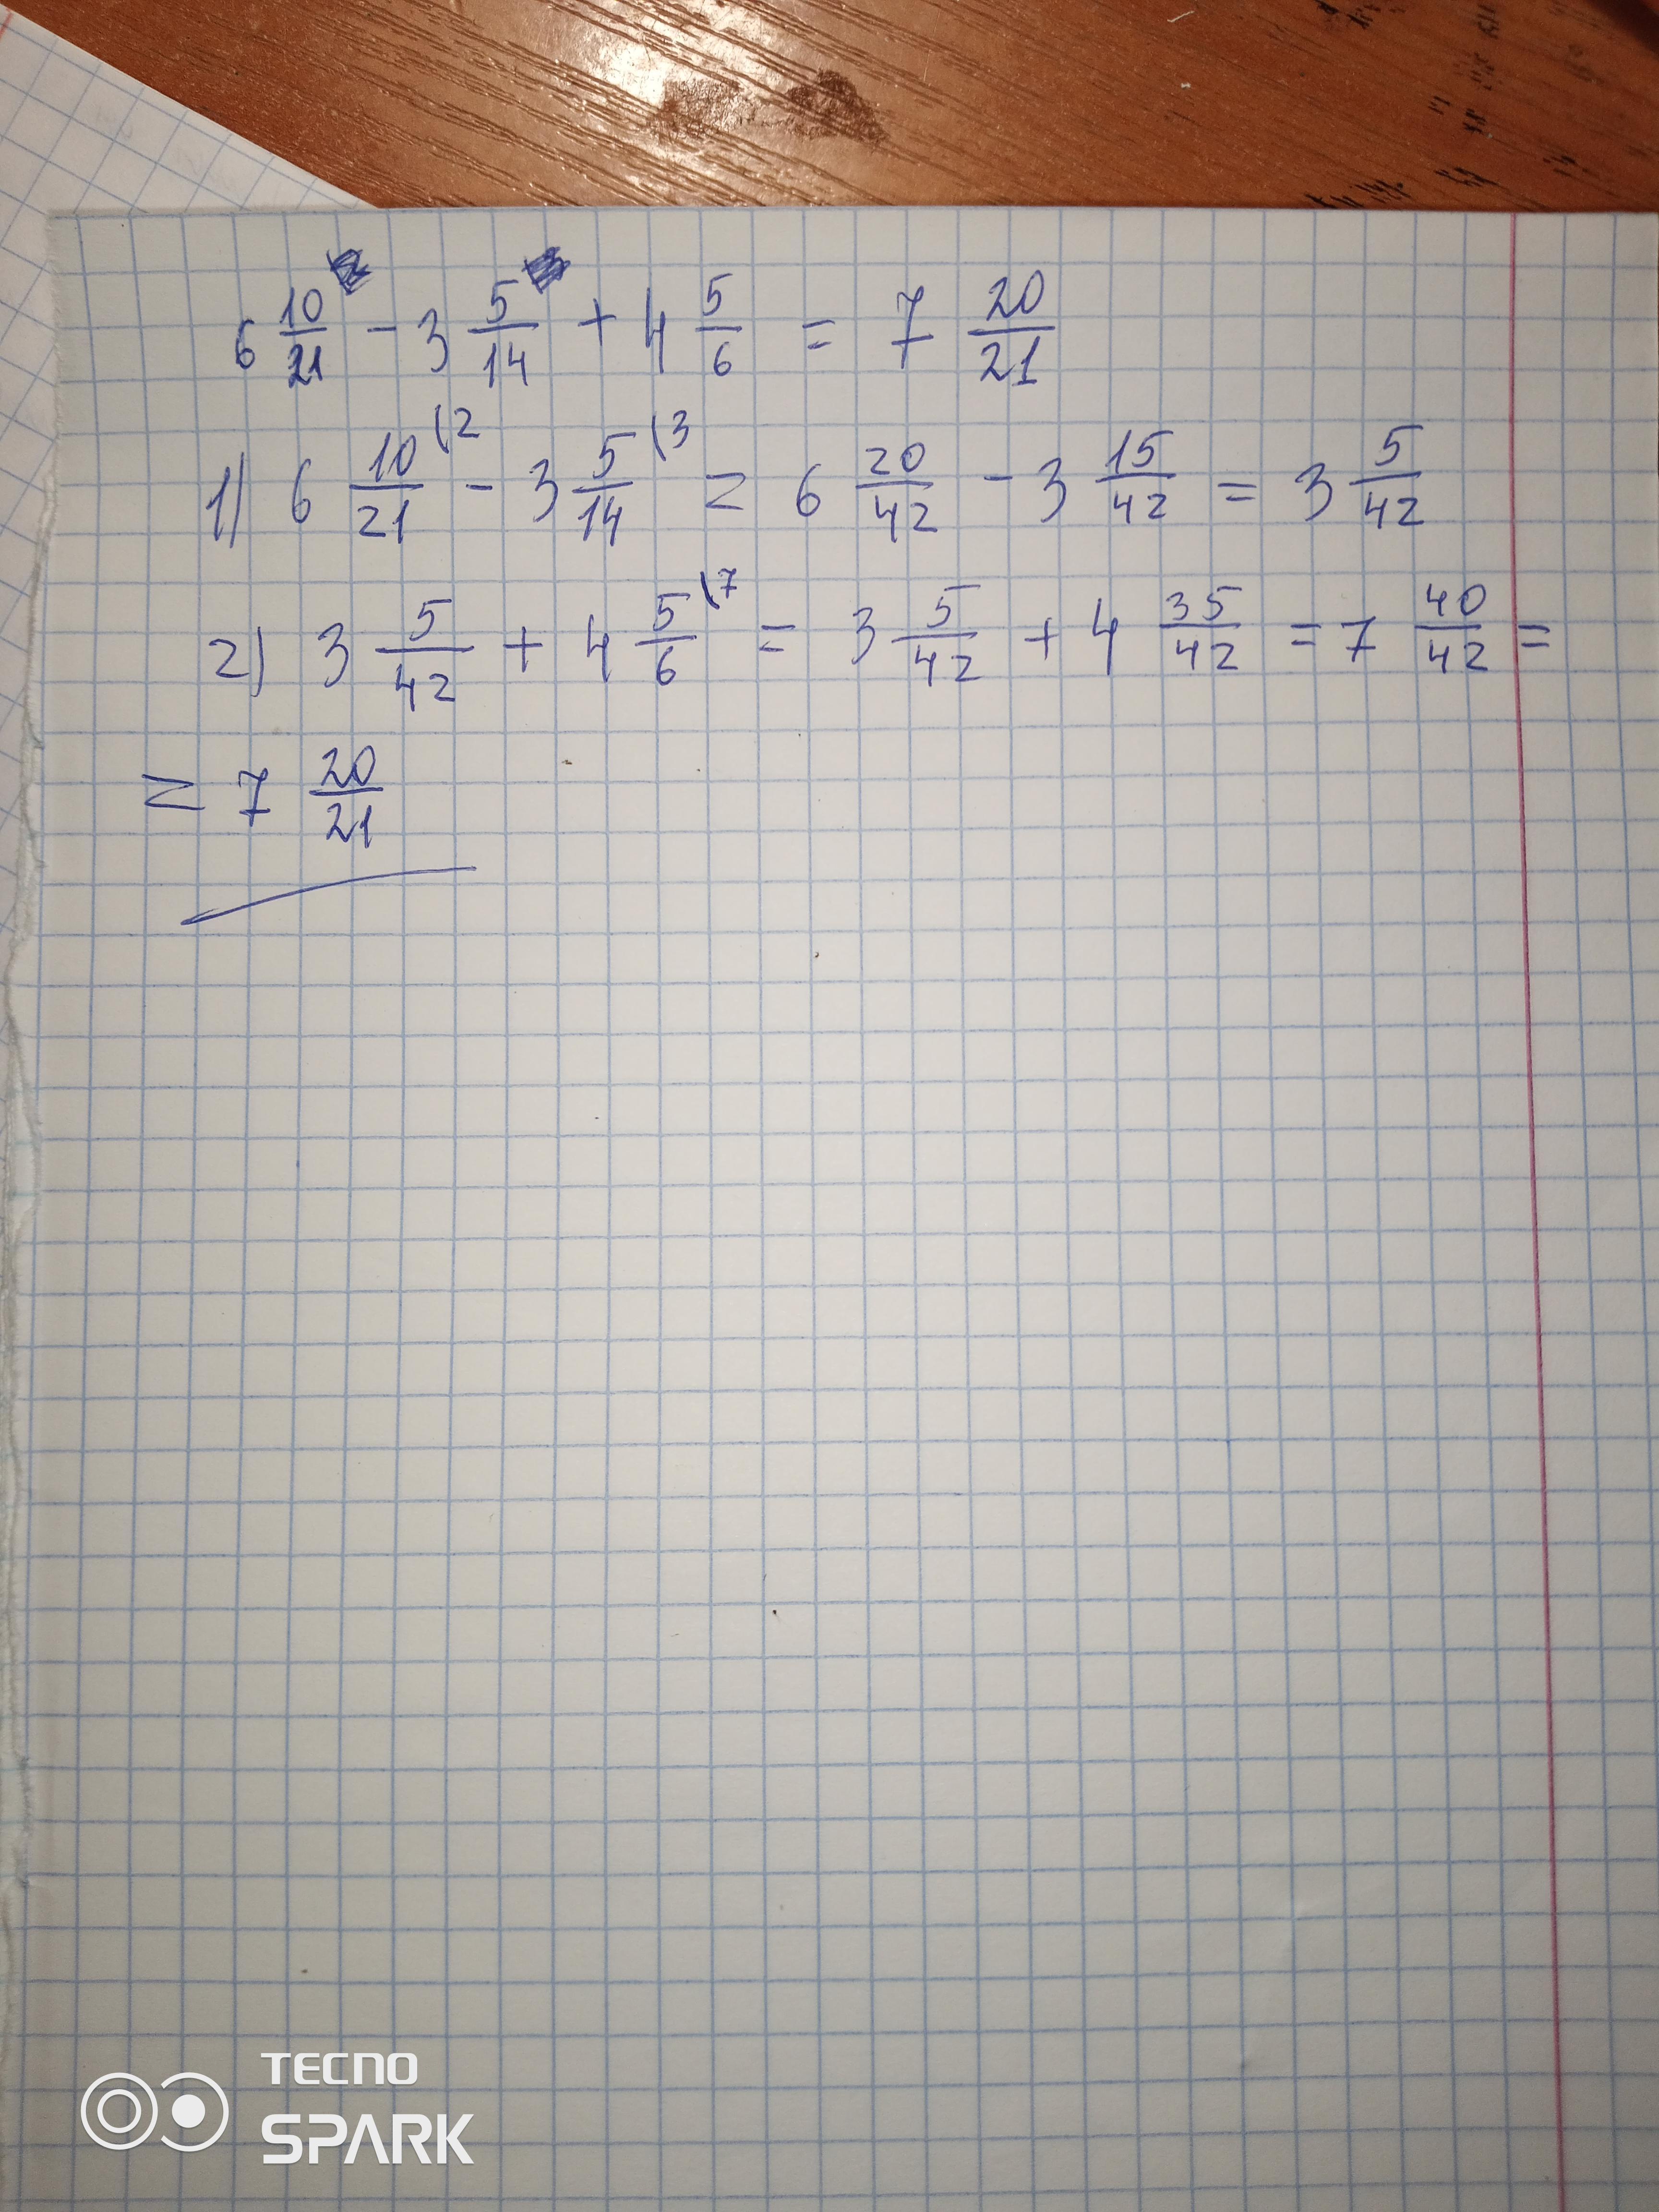 6 10/21 - 3 5/14 + 4 5/6 = 7 20/21
1) 6 10/21 (2 - 3 5/14 (3 = 6 20/42 - 3 15/42 = 3 5/42
2) 3 5/42 + 4 5/6 (7 = 3 5/42 + 4 35/42 = 7 40/42 =
= 7 20/21
TECNO
SPARK